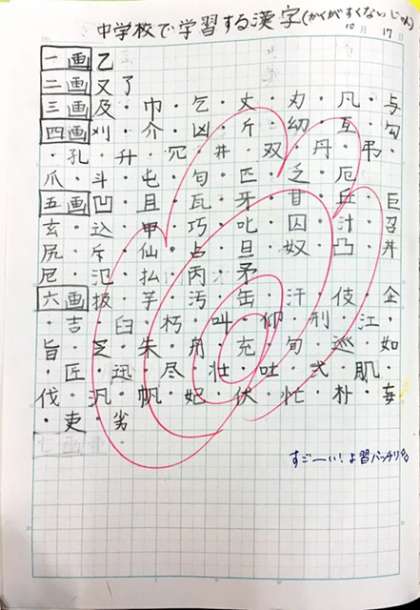 中学校で学習する漢字(かくがすくないじゅん)
10 17
一画 乙
二画 又 了
三画 及・巾・乞・丈・刃・凡・与
四画 刈・介・凶・斤・幻・互・勾
・孔・升・冗・井・双・丹・弔・
爪・斗・屯・匂・匹・乏・厄
五画 凹・且・瓦・牙・甘・丘・巨
玄・込・甲・巧・叱・囚・汁・召
尻・斥・仙・占・旦・奴・凸・丼
尼・氾・払・丙・矛
六画 扱・芋・汚・缶・汗・伎・企
・吉・臼・朽・叫・仰・刑・江・
旨・芝・朱・舟・充・旬・巡・如
・匠・迅・尽・壮・吐・弐・肌・
伐・汎・帆・妃・伏・忙・朴・妄
・吏・劣
すごーい!よ習バッチリ